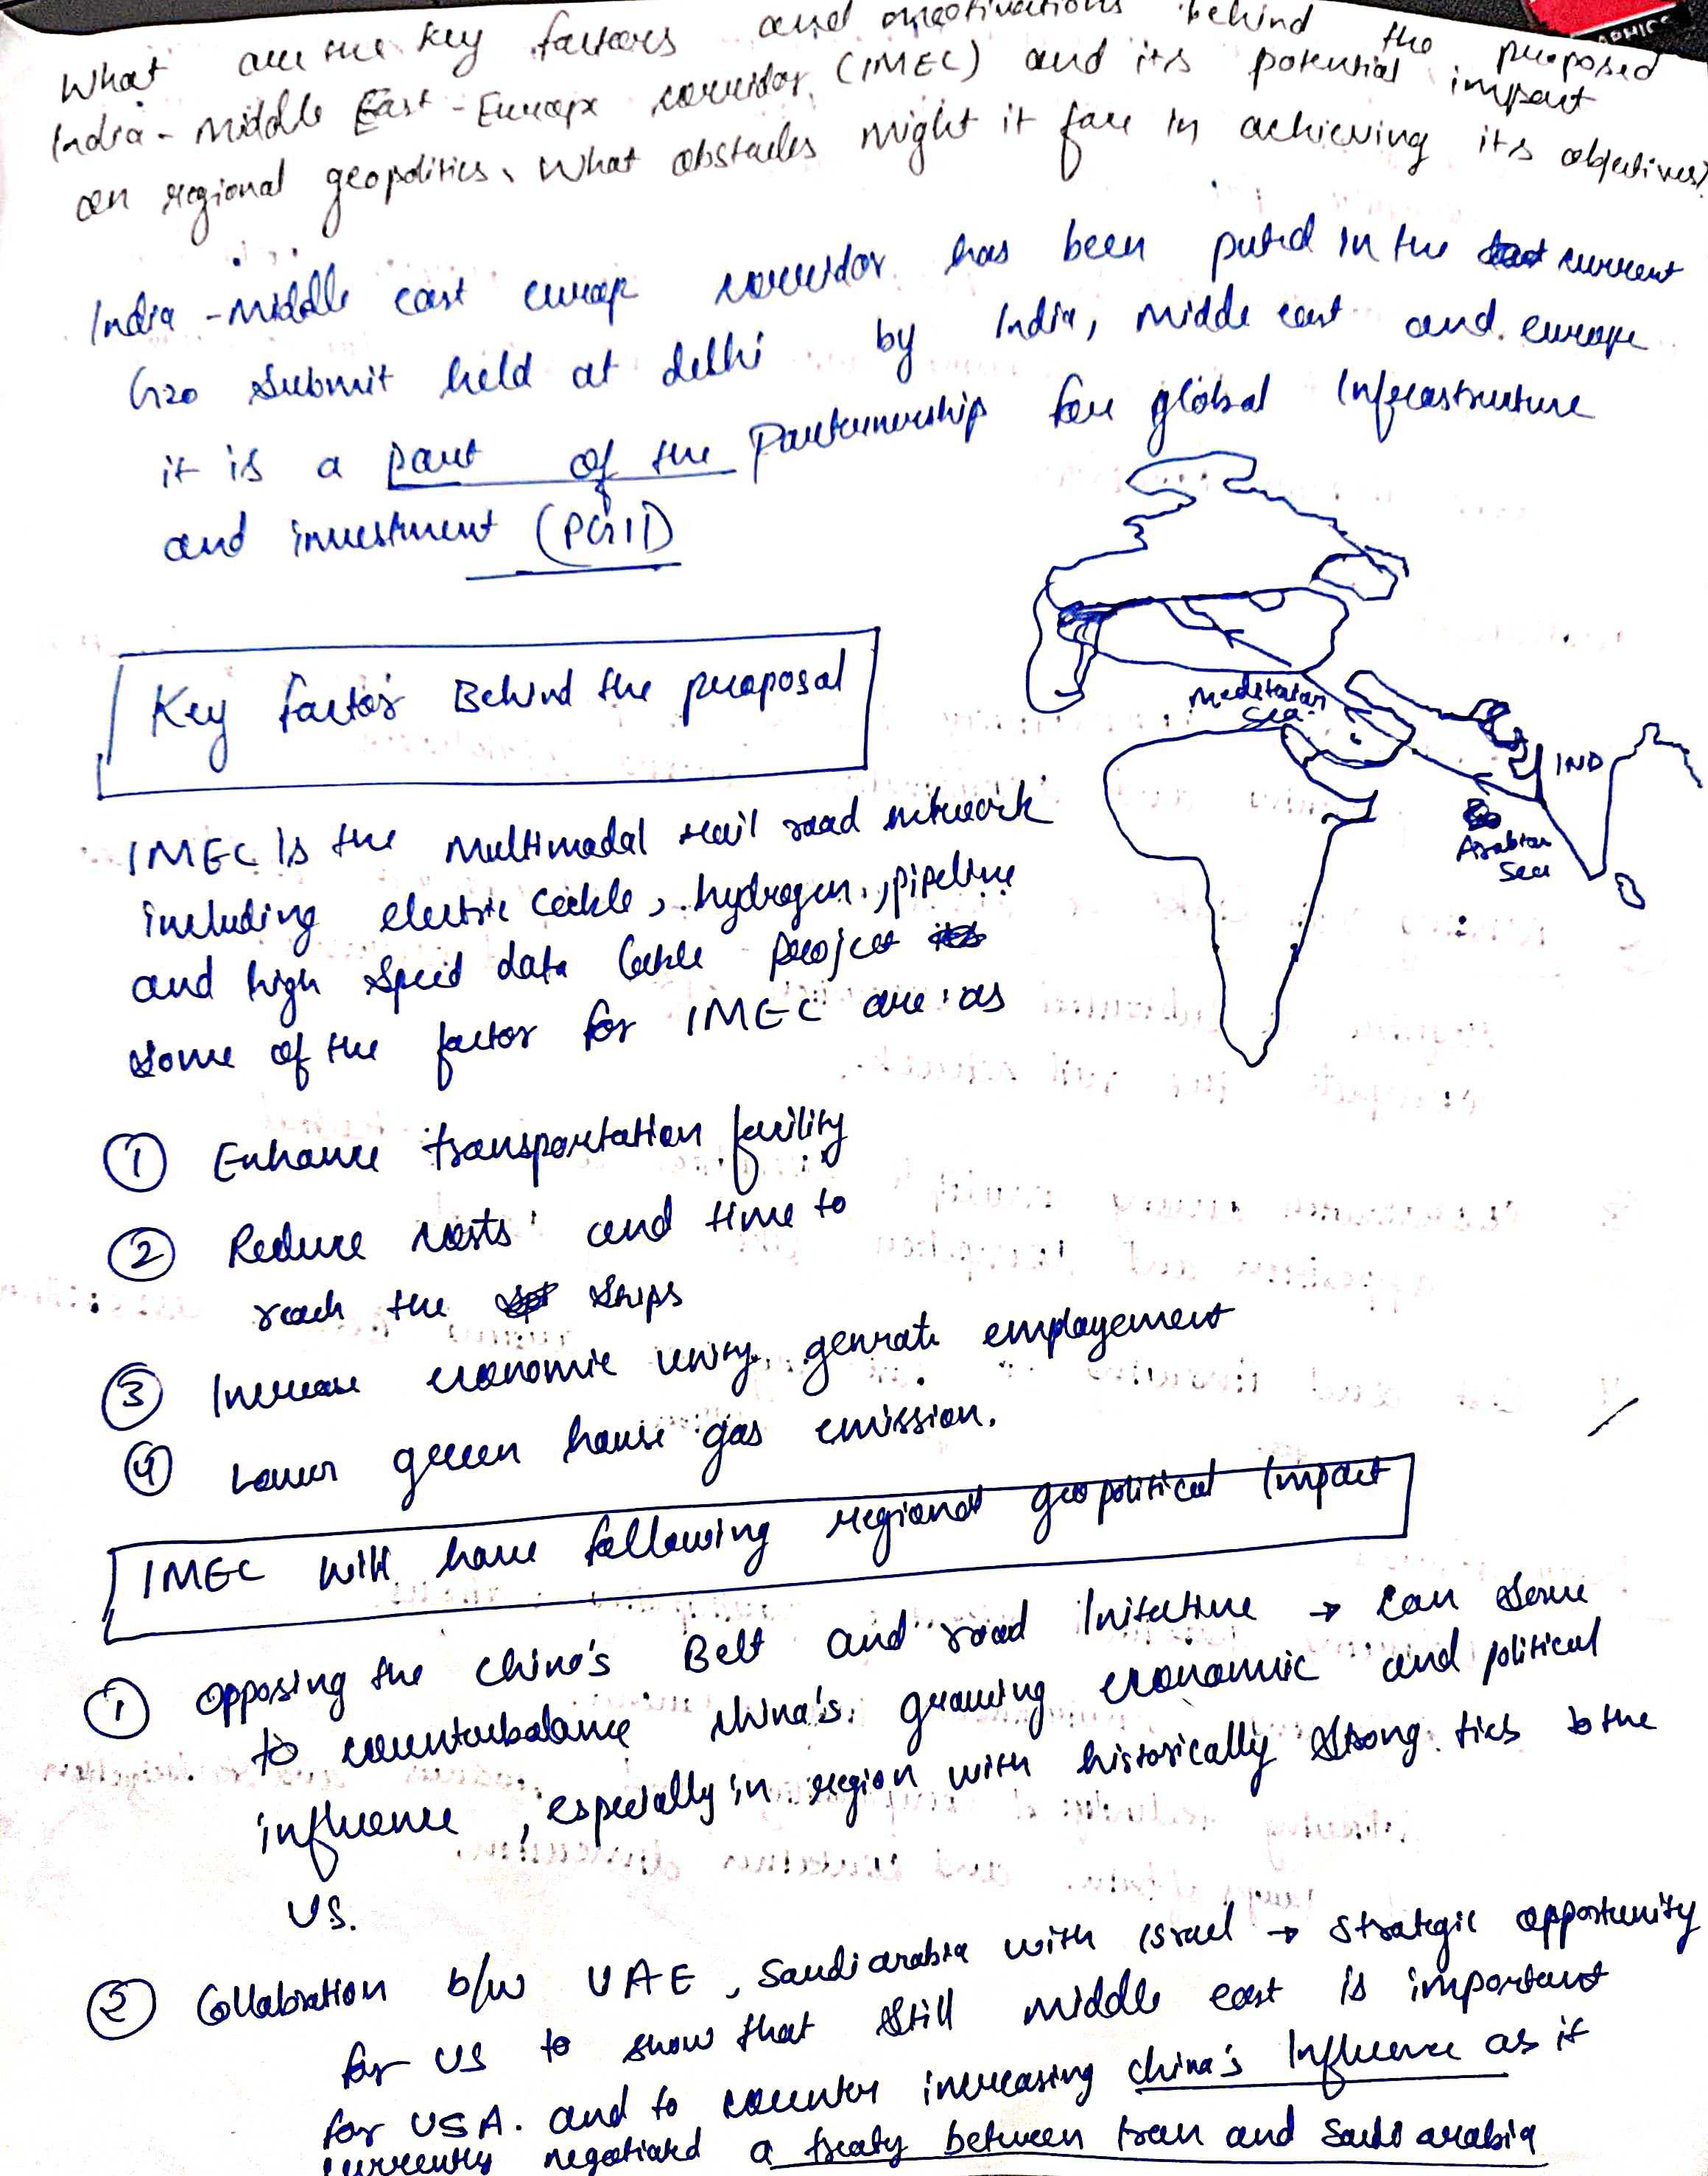 What are the key factors and motivations behind the proposed
India - Middle East - Europe corridor (IMEC) and its potential impact
on regional geopolitics, What obstacles might it face in achieving its objectives?
India - middle east europ corridor has been puted in the current
G20 Submit held at delhi by India, midde east and europe
it is a part of the Parternership for global Infrastructure
and investment (PGII)
Key factor Behind the proposal
IMEC is the Multimodal rail road network
including electric cable, hydrogen, pipeline
and high speed data cable project
some of the factor for IMEC are as
① Enhance transportation facility
② Reduce costs and time to
reach the ships
③ Increase economic unity, genrate employement
④ Lower green house gas emission.
Meditatian
Sea
IND
Arabian
Sea
IMEC will have following regional geopolitical Impact
① opposing the china's Belt and road Initative → can serve
to counterbalance china's growing economic and political
influence, especially in region with historically strong ties to the
US.
② Collabration b/w UAE, Saudi arabia with israel → strategic opportunity
for US to show that still middle east is important
for USA. and to counter increasing china's Influence as it
currently negotiated a treaty between Iran and Saudi arabia